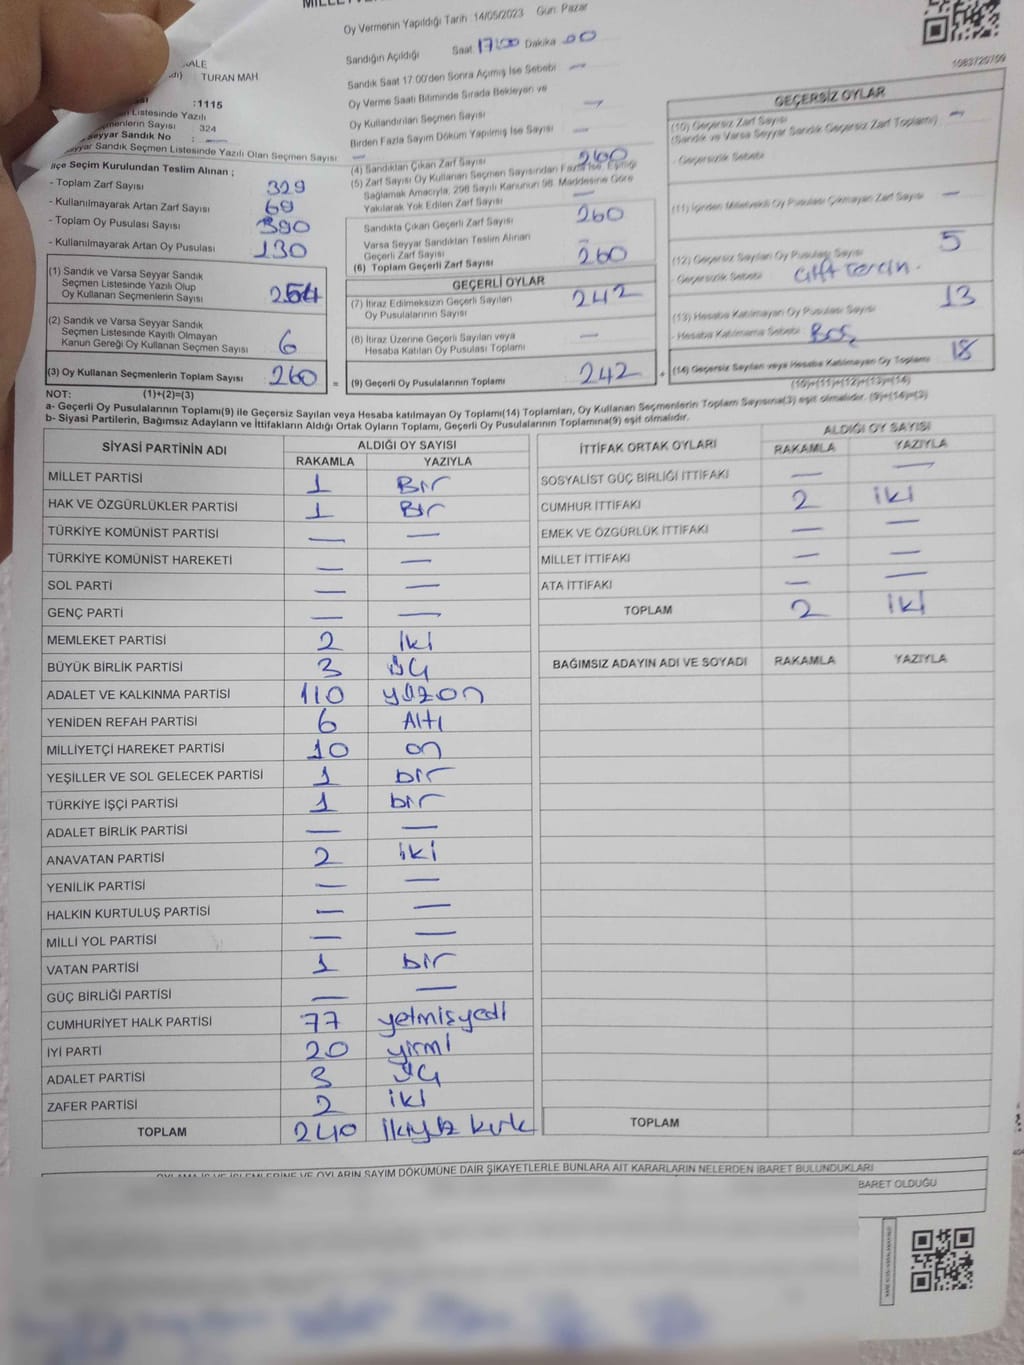 Oy Vermenin Yapıldığı Tarih :14/05/2023 Gün: Pazar
Sandığın Açıldığı Saat 17:00 Dakika 00
Sandık Saat 17:00'den Sonra Açımış İse Sebebi —
Oy Verme Saati Bitiminde Sırada Bekleyen ve
Oy Kullandırılan Seçmen Sayısı —
Birden Fazla Sayım Döküm Yapılmış İse Sayısı —
(4) Sandıktan Çıkan Zarf Sayısı 260
(5) Zarf Sayısı Oy Kullanan Seçmen Sayısından Fazla İse, Eşitliği
Sağlamak Amacıyla, 298 Sayılı Kanunun 98. Maddesine Göre
Yakılarak Yok Edilen Zarf Sayısı —
KALE
TURAN MAH
:1115
Listesinde Yazılı
Seçmenlerin Sayısı 324
Seyyar Sandık No : —
Seyyar Sandık Seçmen Listesinde Yazılı Olan Seçmen Sayısı —
İlçe Seçim Kurulundan Teslim Alınan ;
- Toplam Zarf Sayısı 329
- Kullanılmayarak Artan Zarf Sayısı 69
- Toplam Oy Pusulası Sayısı 390
- Kullanılmayarak Artan Oy Pusulası 130
(1) Sandık ve Varsa Seyyar Sandık
Seçmen Listesinde Yazılı Olup
Oy Kullanan Seçmenlerin Sayısı 254
(2) Sandık ve Varsa Seyyar Sandık
Seçmen Listesinde Kayıtlı Olmayan
Kanun Gereği Oy Kullanan Seçmen Sayısı 6
(3) Oy Kullanan Seçmenlerin Toplam Sayısı 260 =
Sandıkta Çıkan Geçerli Zarf Sayısı 260
Varsa Seyyar Sandıktan Teslim Alınan
Geçerli Zarf Sayısı —
(6) Toplam Geçerli Zarf Sayısı 260
GEÇERLİ OYLAR
(7) İtiraz Edilmeksizin Geçerli Sayılan
Oy Pusulalarının Sayısı 242
(8) İtiraz Üzerine Geçerli Sayılan veya
Hesaba Katılan Oy Pusulası Toplamı —
(9) Geçerli Oy Pusulalarının Toplamı 242 +
1083720799
GEÇERSİZ OYLAR
(10) Geçersiz Zarf Sayısı
(Sandık ve Varsa Seyyar Sandık Geçersiz Zarf Toplamı) —
- Geçersizlik Sebebi
(11) İçinden Milletvekili Oy Pusulası Çıkmayan Zarf Sayısı —
(12) Geçersiz Sayılan Oy Pusulası Sayısı 5
Geçersizlik Sebebi Çift Tercih.
(13) Hesaba Katılmayan Oy Pusulası Sayısı 13
- Hesaba Katılmama Sebebi Boş
(14) Geçersiz Sayılan veya Hesaba Katılmayan Oy Toplamı 18
(10)+(11)+(12)+(13)=(14)
NOT: (1)+(2)=(3)
a- Geçerli Oy Pusulalarının Toplamı(9) ile Geçersiz Sayılan veya Hesaba katılmayan Oy Toplamı(14) Toplamları, Oy Kullanan Seçmenlerin Toplam Sayısına(3) eşit olmalıdır. (9)+(14)=(3)
b- Siyasi Partilerin, Bağımsız Adayların ve İttifakların Aldığı Ortak Oyların Toplamı, Geçerli Oy Pusulalarının Toplamına(9) eşit olmalıdır.
SİYASİ PARTİNİN ADI ALDIĞI OY SAYISI
RAKAMLA YAZIYLA
MİLLET PARTİSİ 1 Bir
HAK VE ÖZGÜRLÜKLER PARTİSİ 1 Bir
TÜRKİYE KOMÜNİST PARTİSİ — —
TÜRKİYE KOMÜNİST HAREKETİ — —
SOL PARTİ — —
GENÇ PARTİ — —
MEMLEKET PARTİSİ 2 iki
BÜYÜK BİRLİK PARTİSİ 3 üç
ADALET VE KALKINMA PARTİSİ 110 yüzon
YENİDEN REFAH PARTİSİ 6 Altı
MİLLİYETÇİ HAREKET PARTİSİ 10 on
YEŞİLLER VE SOL GELECEK PARTİSİ 1 bir
TÜRKİYE İŞÇİ PARTİSİ 1 bir
ADALET BİRLİK PARTİSİ — —
ANAVATAN PARTİSİ 2 iki
YENİLİK PARTİSİ — —
HALKIN KURTULUŞ PARTİSİ — —
MİLLİ YOL PARTİSİ — —
VATAN PARTİSİ 1 bir
GÜÇ BİRLİĞİ PARTİSİ — —
CUMHURİYET HALK PARTİSİ 77 yetmişyedi
İYİ PARTİ 20 yirmi
ADALET PARTİSİ 3 üç
ZAFER PARTİSİ 2 iki
TOPLAM 240 ikiyüz kırk
İTTİFAK ORTAK OYLARI ALDIĞI OY SAYISI
RAKAMLA YAZIYLA
SOSYALİST GÜÇ BİRLİĞİ İTTİFAKI — —
CUMHUR İTTİFAKI 2 iki
EMEK VE ÖZGÜRLÜK İTTİFAKI — —
MİLLET İTTİFAKI — —
ATA İTTİFAKI — —
TOPLAM 2 iki
BAĞIMSIZ ADAYIN ADI VE SOYADI RAKAMLA YAZIYLA
TOPLAM
OYLAMA İŞ VE İŞLEMLERİNE VE OYLARIN SAYIM DÖKÜMÜNE DAİR ŞİKAYETLERLE BUNLARA AİT KARARLARIN NELERDEN İBARET BULUNDUKLARI
BARET OLDUĞU